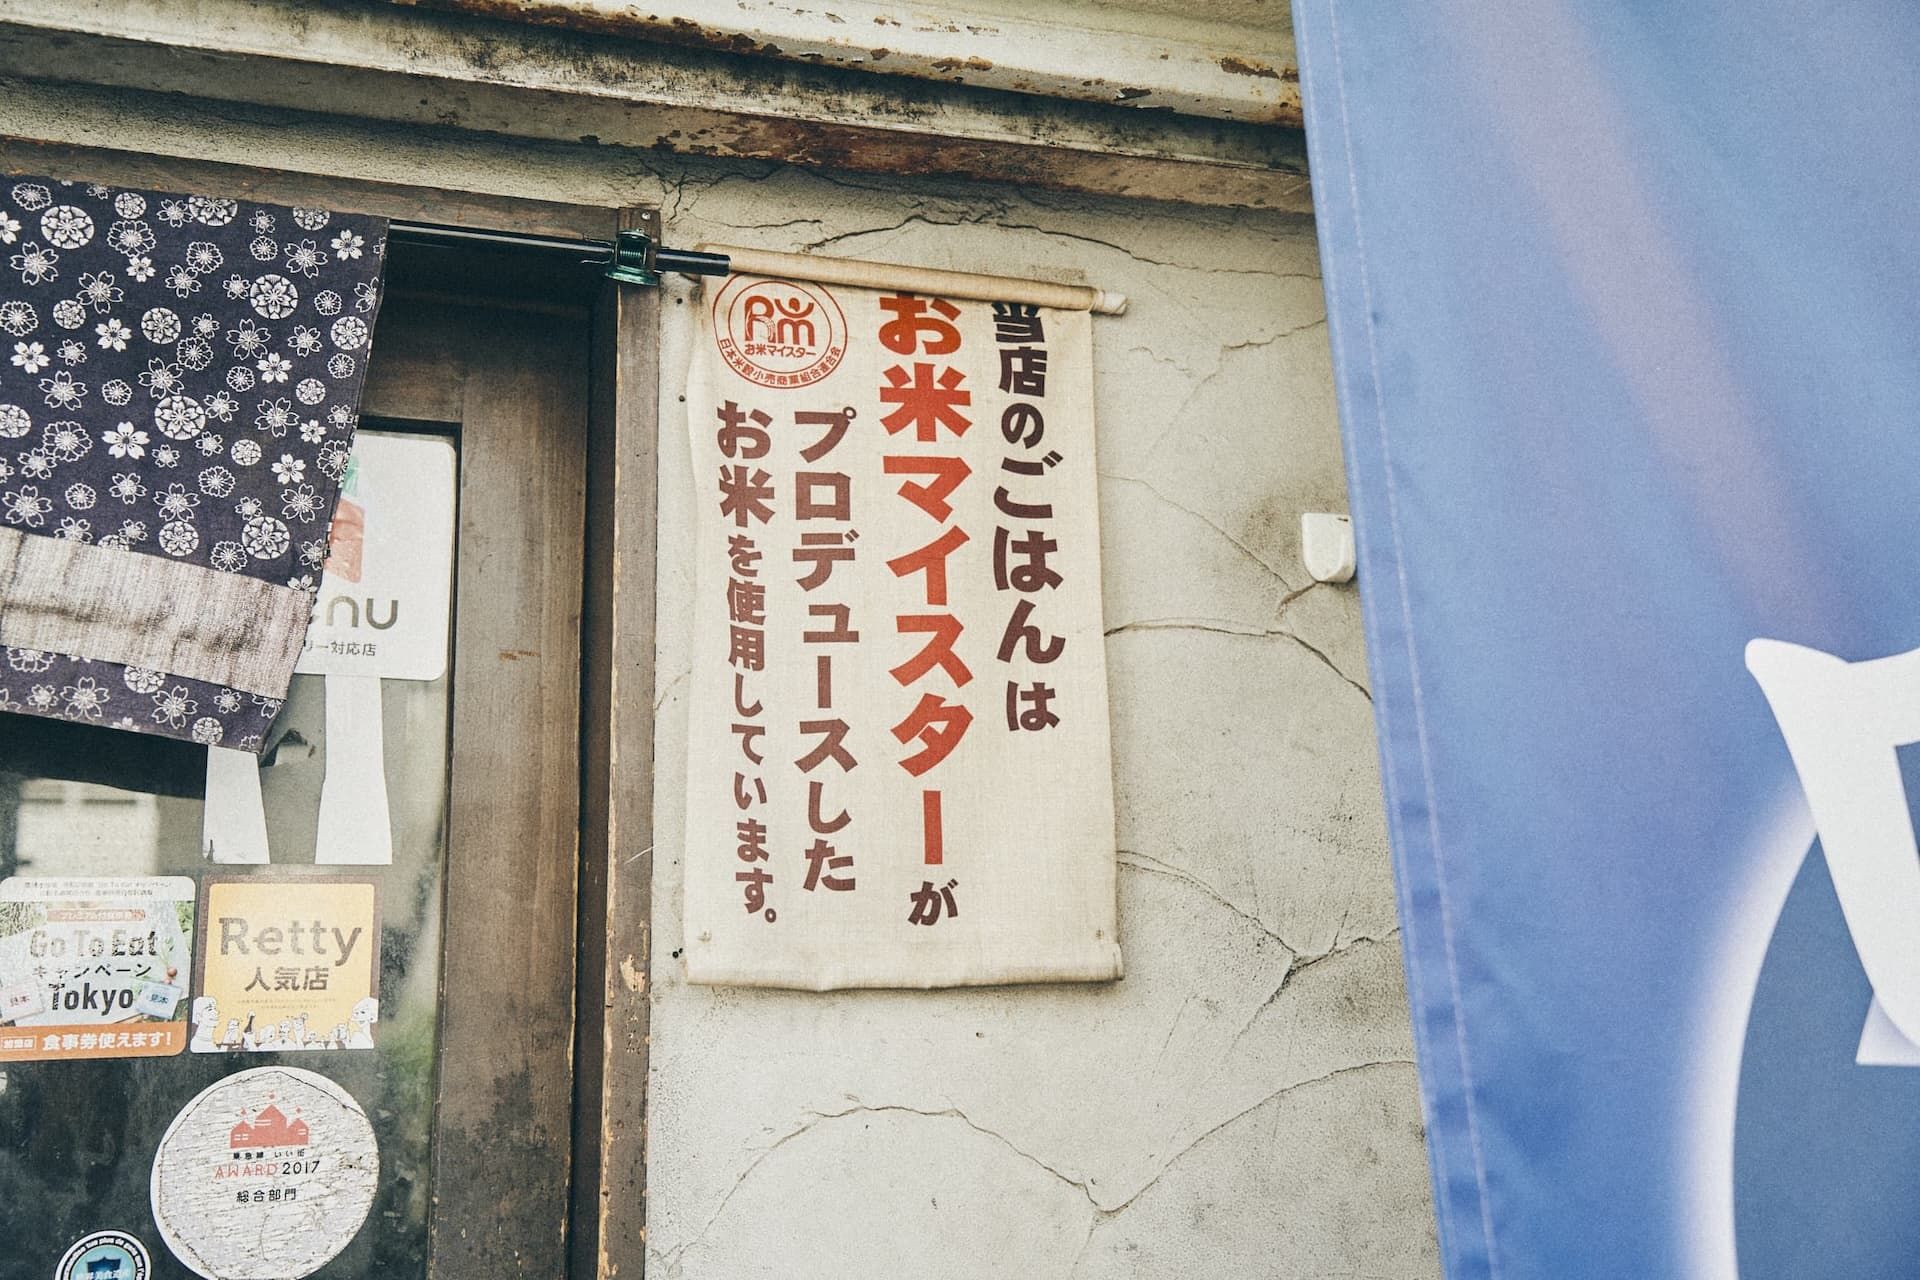 当店のごはんは
お米マイスターが
プロデュースした
お米を使用しています。
お米マイスター
日本米穀小売商業組合連合会
enu
リー対応店
プレミアム付食事券
Go To Eat
キャンペーン
Tokyo
見本
見本
加盟店 食事券使えます!
Retty
人気店
東急線 いい街
AWARD 2017
総合部門